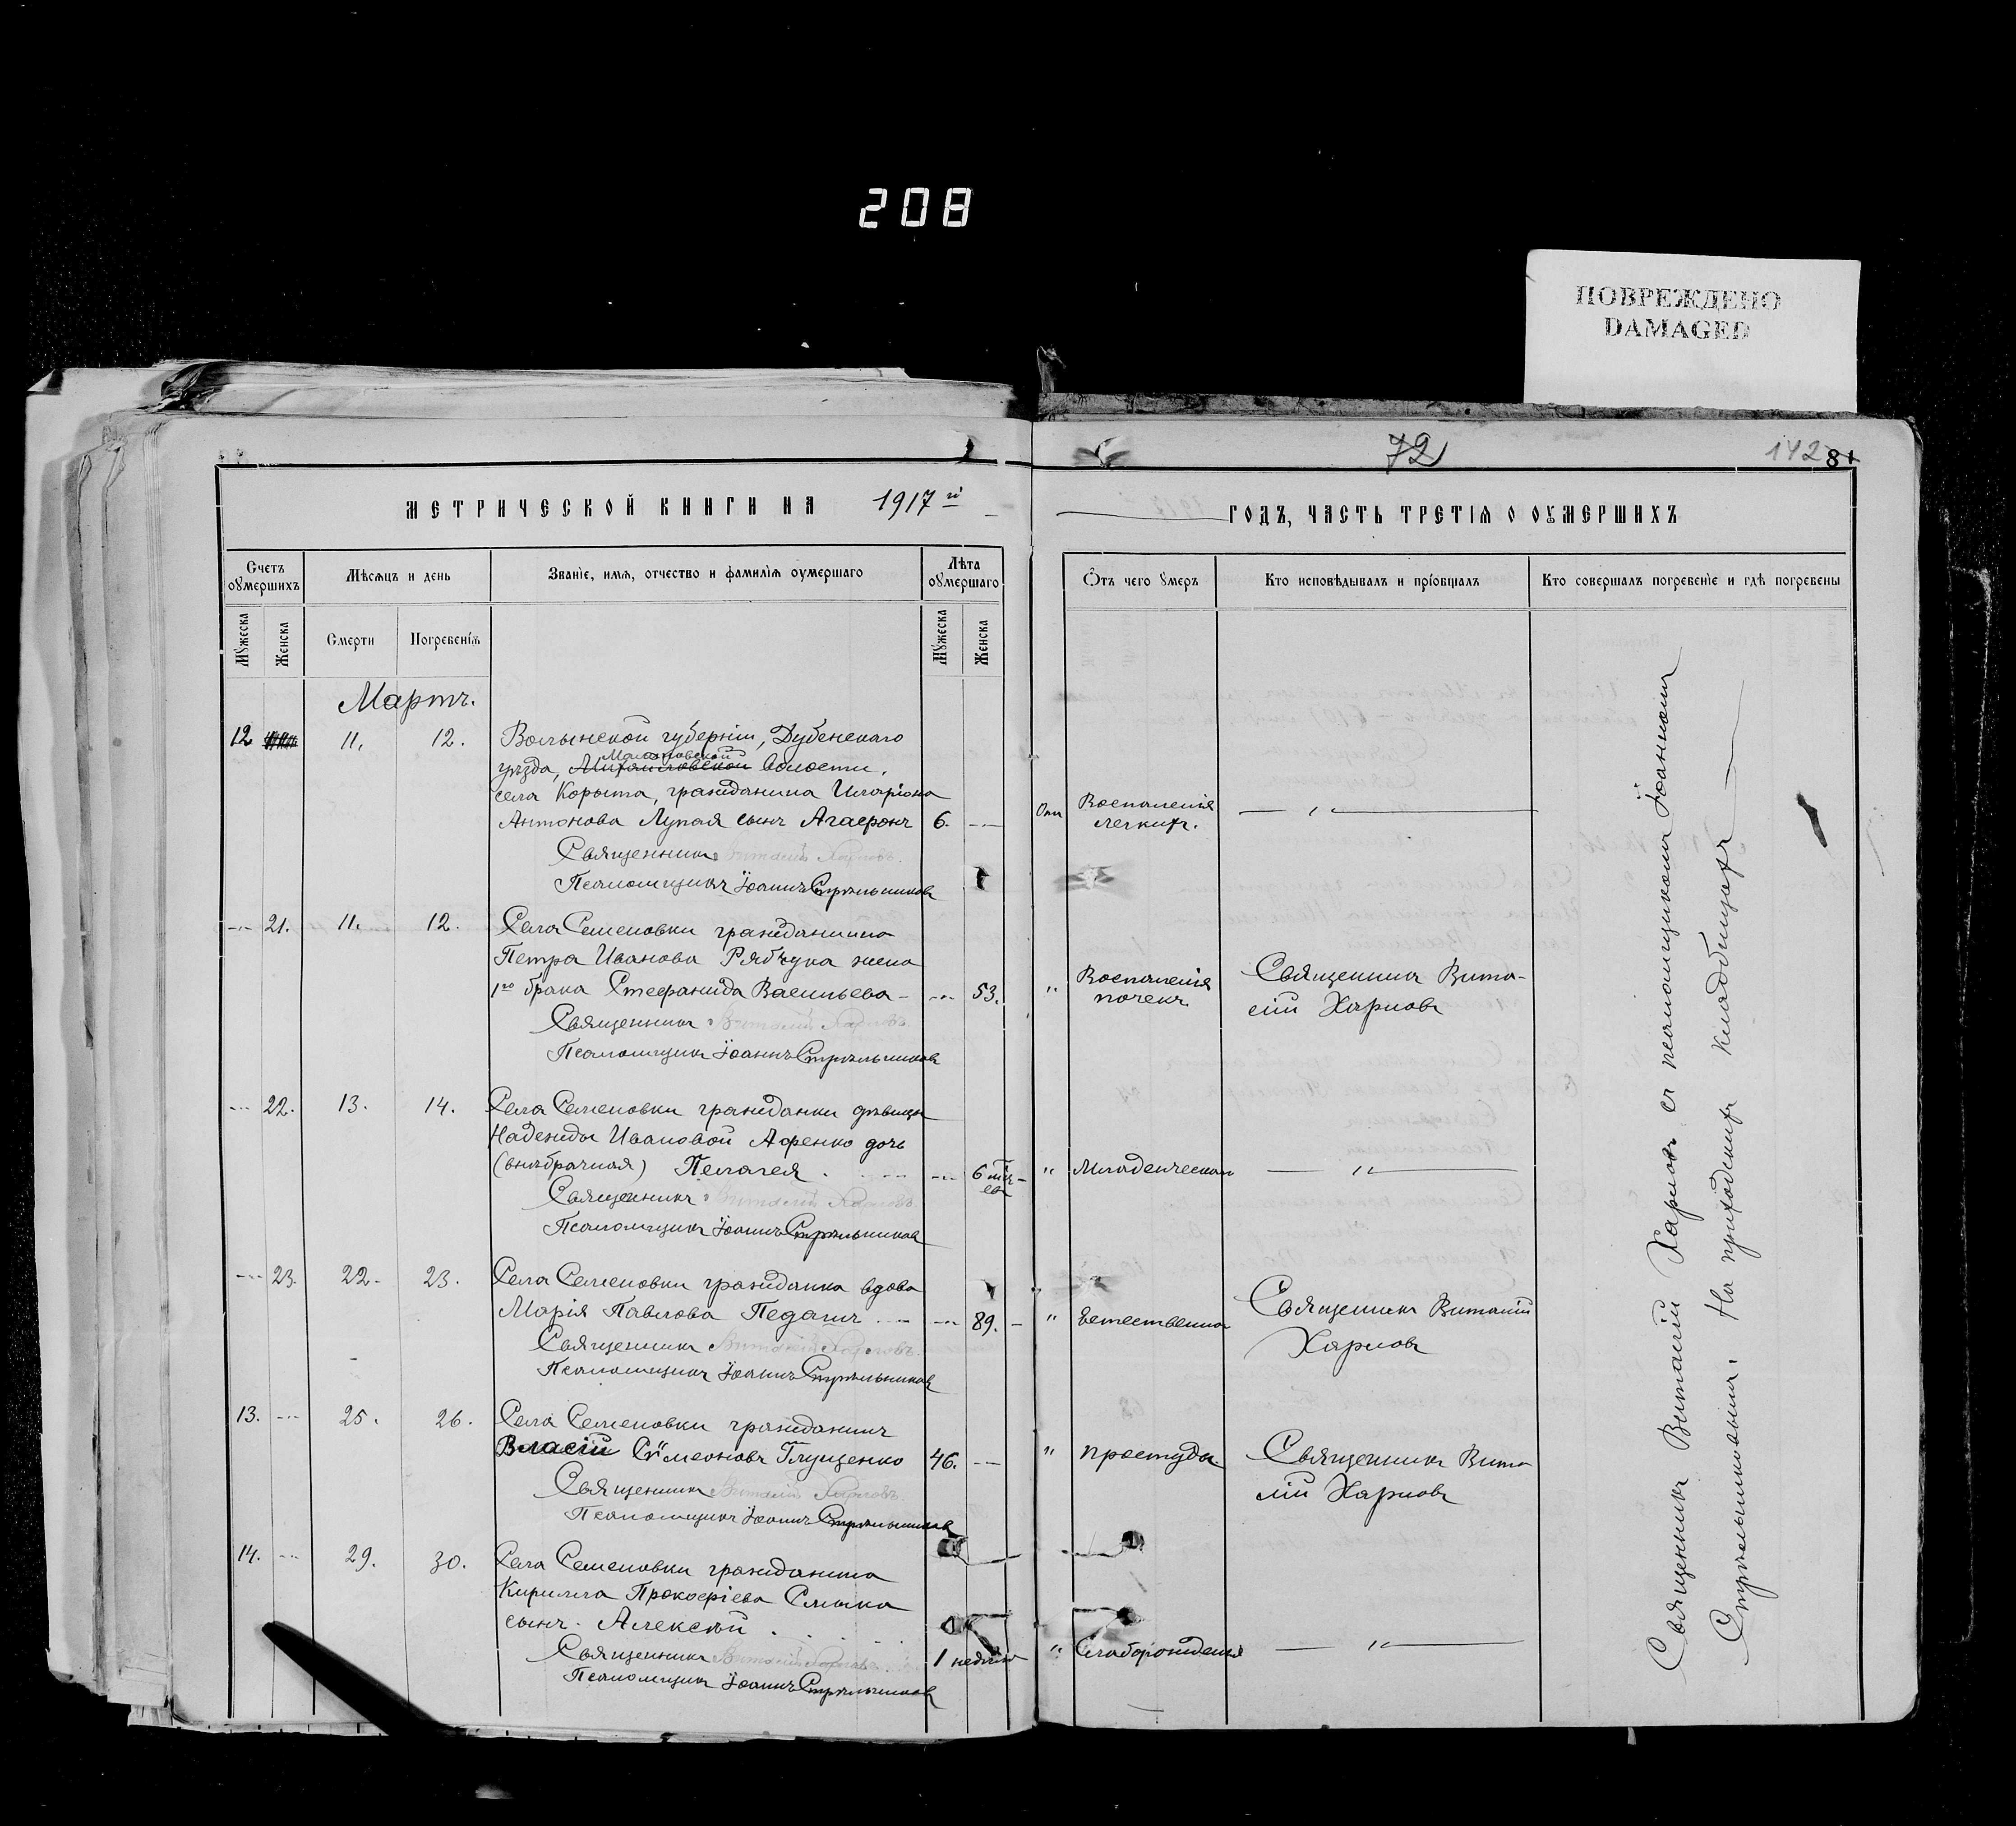 208
ПОВРЕЖДЕНО
DAMAGED
72
142
81
МЕТРИЧЕСКОЙ КНИГИ НА 1917 й
ГОДЪ, ЧАСТЬ ТРЕТІѦ О ОУМЕРШИХЪ
Счетъ оумершихъ
Мѣсѧцъ и день
Званіе, имѧ, отчество и фамиліѧ оумершаго
Лѣта оумершаго
Ѿтъ чего умеръ
Кто исповѣдывалъ и пріобщалъ
Кто совершалъ погребеніе и гдѣ погребены
Мужеска
Женска
Смерти
Погребеніѧ
Мужеска
Женска
Мартъ.
12 11. 12. Волынской губерніи, Дубенскаго
уѣзда, волости,
села Корыта, гражданина Иларіона
Антонова Лупая сынъ Агафонъ 6. Отъ Воспаленія легкихъ.
Священникъ Виталій Харловъ.
Псаломщикъ Іоаннъ Стрѣльниковъ
21. 11. 12. Села Семеновки гражданина
Петра Иванова Рябчука жена
1го брака Стефанида Васильева - 53. " Воспаленія почекъ Священникъ Вита-
лій Харловъ
Священникъ Виталій Харловъ.
Псаломщикъ Іоаннъ Стрѣльниковъ
22. 13. 14. Села Семеновки гражданки дѣвицы
Надежды Ивановой Афенко дочь
(внѣбрачная) Пелагея. 6 мѣся-
цевъ " Младенческая "
Священникъ Виталій Харловъ.
Псаломщикъ Іоаннъ Стрѣльниковъ
23. 22. 23. Села Семеновки гражданка вдова
Марія Павлова Педаш 89. " Естественно Священникъ Виталій
Харловъ
Священникъ Виталій Харловъ.
Псаломщикъ Іоаннъ Стрѣльниковъ
13. 25. 26. Села Семеновки гражданинъ
Власій Сѵмеоновъ Глущенко 46. " простуды. Священникъ Вита-
лій Харловъ
Священникъ Виталій Харловъ.
Псаломщикъ Іоаннъ Стрѣльниковъ
14. 29. 30. Села Семеновки гражданина
Кирилла Прокофіева Смыка
сынъ Алексѣй.
1 недѣли " Слаборожденія "
Священникъ Виталій Харловъ.
Псаломщикъ Іоаннъ Стрѣльниковъ
Священникъ Виталій Харловъ съ псаломщикомъ Іоанномъ
Стрѣльниковымъ. На приходскихъ кладбищахъ